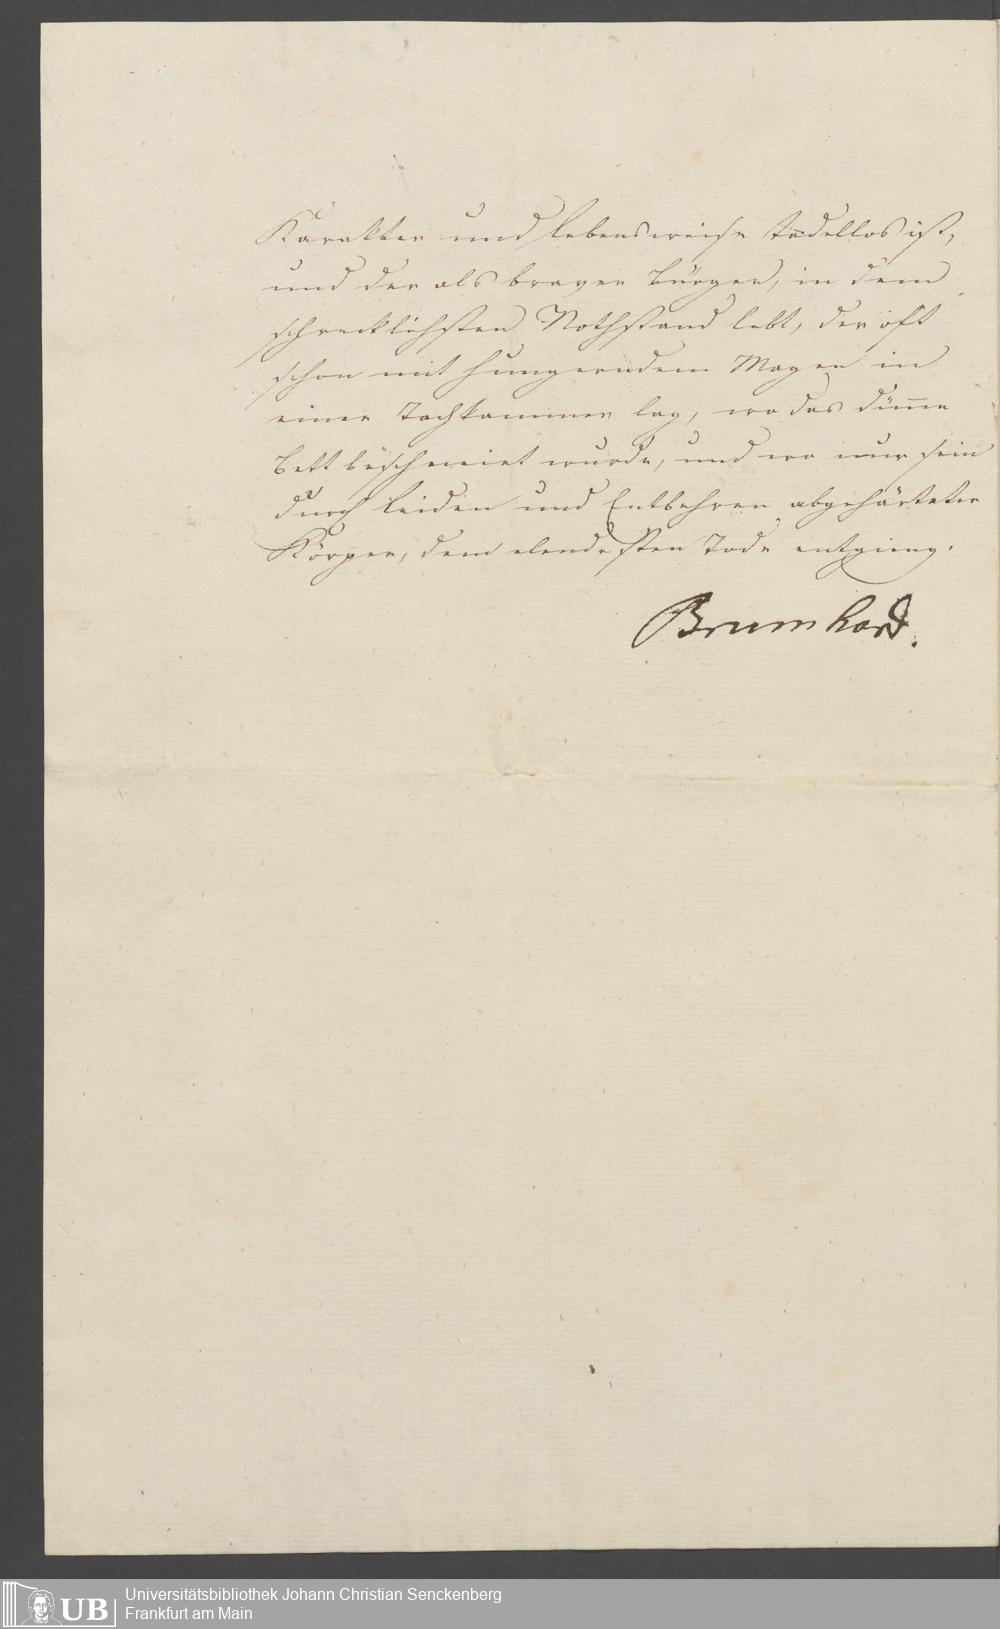 Karakter und Lebensweise tadellos ist,
und der als braver Bürger, in dem
schrecklichsten Nothstand lebt, der oft
schon mit hungerndem Magen in
einer Dachkammer lag, wo das dünne
Bett beschneiet wurde, und wo nur sein
durch Leiden und Entbehren abgehärteter
Körper, dem elendesten Tode entgieng.
Brumhard.
Universitätsbibliothek Johann Christian Senckenberg
Frankfurt am Main
UB